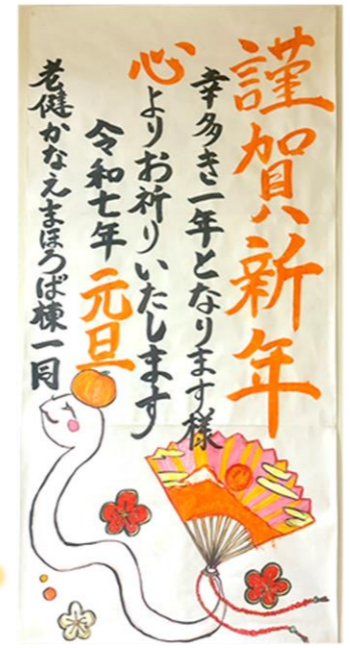 謹賀新年
幸多き一年となります様
心よりお祈りいたします
令和七年 元旦
老健かなえまほろば棟一同